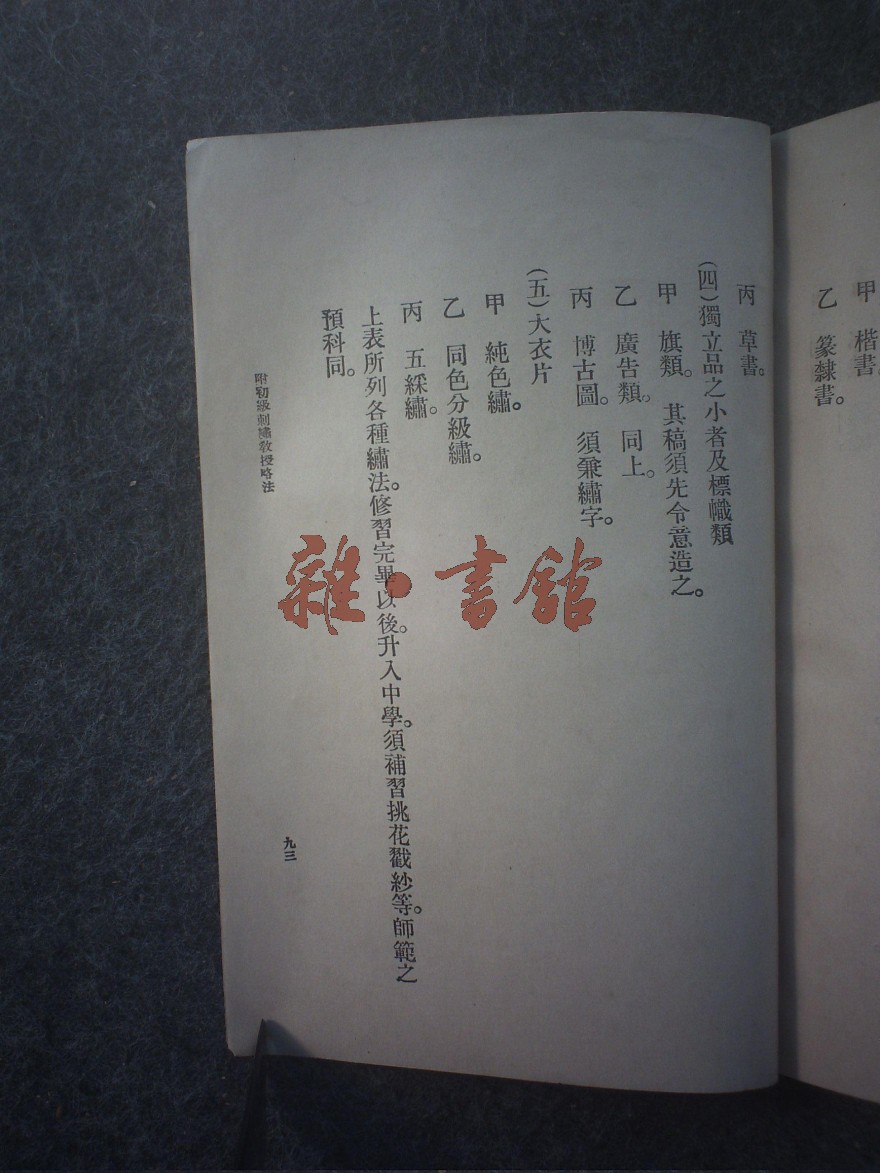 甲　楷書。
乙　篆隸書。
丙　草書。
(四)獨立品之小者及標幟類
甲　旗類。其稿須先令意造之。
乙　廣告類。同上。
丙　博古圖。須兼繡字。
(五)大衣片
甲　純色繡。
乙　同色分級繡。
丙　五綵繡。
上表所列各種繡法。修習完畢以後。升入中學。須補習挑花戳紗等。師範之
預科同。
附初級刺繡敎授略法
九三
雜·書館